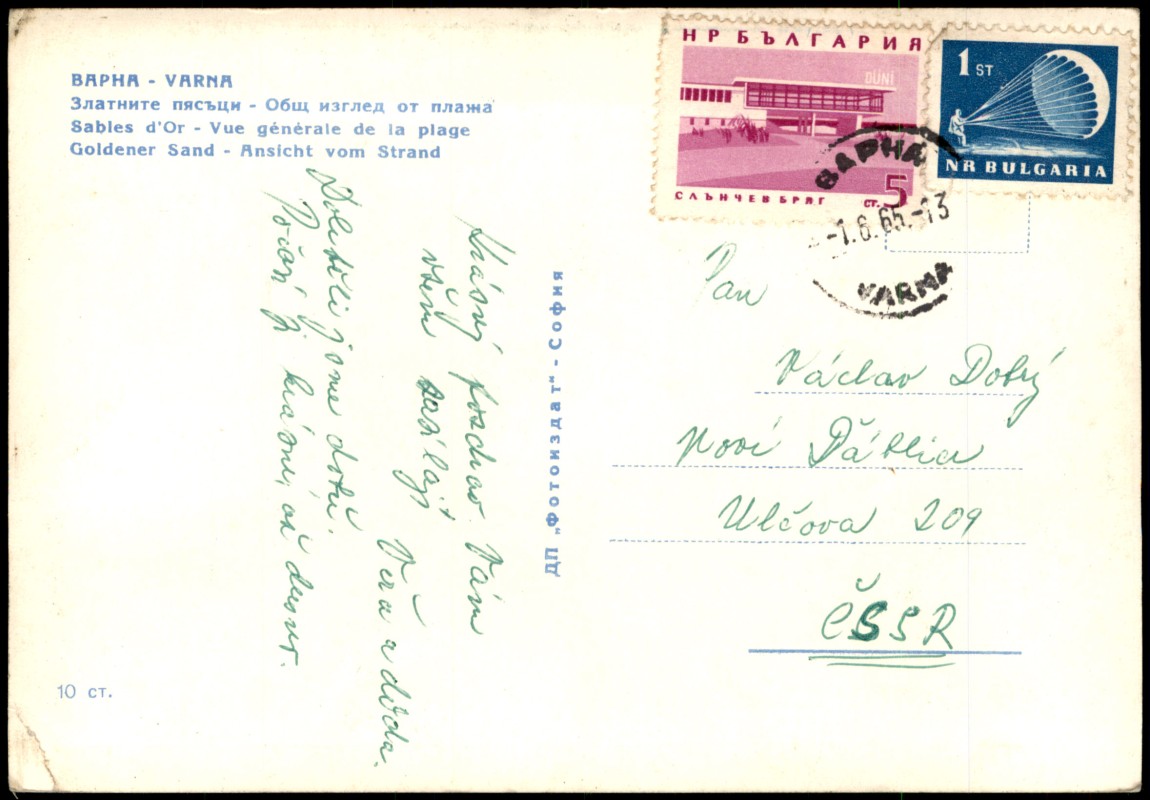 ВАРНА - VARNA
Златните пясъци - Общ изглед от плажа
Sables d'Or - Vue générale de la plage
Goldener Sand - Ansicht vom Strand
НР БЪЛГАРИЯ
DÜNI
СЛЪНЧЕВ БРЯГ СТ. 5
1 ST
NR BULGARIA
ВАРНА
-1.6.65.-13
VARNA
Krásný pozdrav Vám
všem zasílají
Věra a děda.
Doletěli jsme dobře.
Počasí je krásné,
ДП „Фотоиздат" - София
Pan
Václav Dobrý
Nové Ďáblice
Ulčova 209
ČSSR
10 ст.